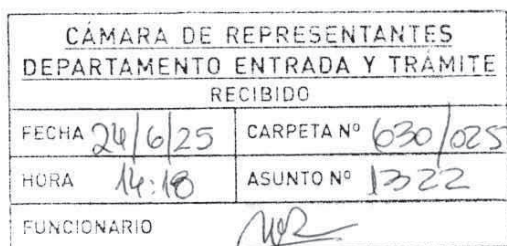 CÁMARA DE REPRESENTANTES
DEPARTAMENTO ENTRADA Y TRÁMITE
RECIBIDO
FECHA 24/6/25 CARPETA Nº 630/025
HORA 14:18 ASUNTO Nº 13322
FUNCIONARIO